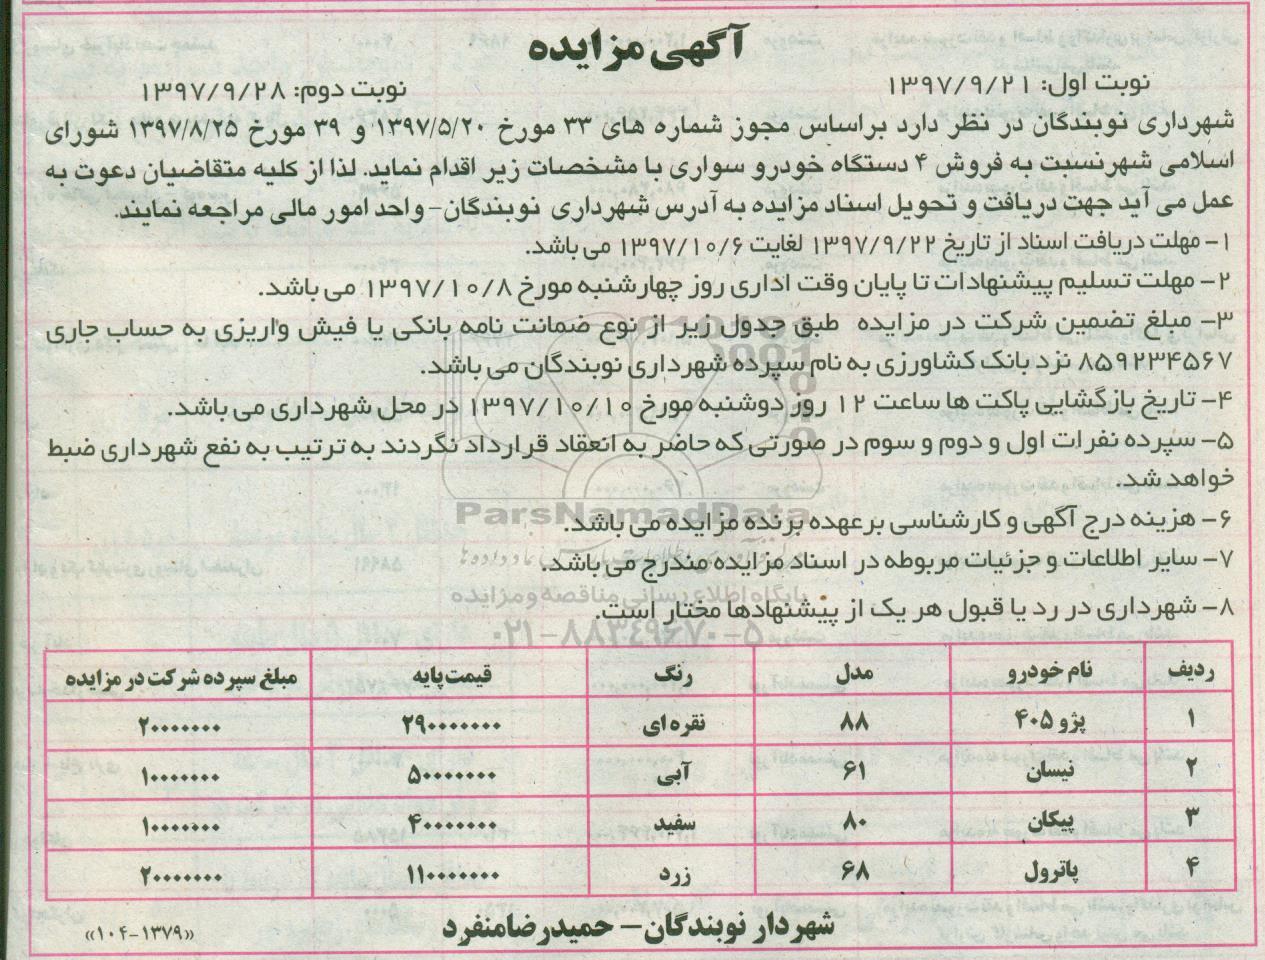 آگهی مزایده
نوبت اول: ۱۳۹۷/۹/۲۱
نوبت دوم: ۱۳۹۷/۹/۲۸
شهرداری نوبندگان در نظر دارد براساس مجوز شماره های ۳۳ مورخ ۱۳۹۷/۵/۲۰ و ۳۹ مورخ ۱۳۹۷/۸/۲۵ شورای
اسلامی شهر نسبت به فروش ۴ دستگاه خودرو سواری با مشخصات زیر اقدام نماید. لذا از کلیه متقاضیان دعوت به
عمل می آید جهت دریافت و تحویل اسناد مزایده به آدرس شهرداری نوبندگان- واحد امور مالی مراجعه نمایند.
۱- مهلت دریافت اسناد از تاریخ ۱۳۹۷/۹/۲۲ لغایت ۱۳۹۷/۱۰/۶ می باشد.
۲- مهلت تسلیم پیشنهادات تا پایان وقت اداری روز چهارشنبه مورخ ۱۳۹۷/۱۰/۸ می باشد.
۳- مبلغ تضمین شرکت در مزایده طبق جدول زیر از نوع ضمانت نامه بانکی یا فیش واریزی به حساب جاری
۸۵۹۲۳۴۵۶۷ نزد بانک کشاورزی به نام سپرده شهرداری نوبندگان می باشد.
۴- تاریخ بازگشایی پاکت ها ساعت ۱۲ روز دوشنبه مورخ ۱۳۹۷/۱۰/۱۰ در محل شهرداری می باشد.
۵- سپرده نفرات اول و دوم و سوم در صورتی که حاضر به انعقاد قرارداد نگردند به ترتیب به نفع شهرداری ضبط
خواهد شد.
۶- هزینه درج آگهی و کارشناسی بر عهده برنده مزایده می باشد.
۷- سایر اطلاعات و جزئیات مربوطه در اسناد مزایده مندرج می باشد.
۸- شهرداری در رد یا قبول هر یک از پیشنهادها مختار است.
ردیف نام خودرو مدل رنگ قیمت پایه مبلغ سپرده شرکت در مزایده
۱ پژو ۴۰۵ ۸۸ نقره ای ۲۹۰۰۰۰۰۰۰ ۲۰۰۰۰۰۰۰
۲ نیسان ۶۱ آبی ۵۰۰۰۰۰۰۰ ۱۰۰۰۰۰۰۰
۳ پیکان ۸۰ سفید ۴۰۰۰۰۰۰۰ ۱۰۰۰۰۰۰۰
۴ پاترول ۶۸ زرد ۱۱۰۰۰۰۰۰۰ ۲۰۰۰۰۰۰۰
شهردار نوبندگان - حمیدرضا منفرد
«۱۰۴-۱۳۷۹»
ParsNamadData
پایگاه اطلاع رسانی مناقصه و مزایده
۰۲۱-۸۸۳۴۹۶۷۰-۵